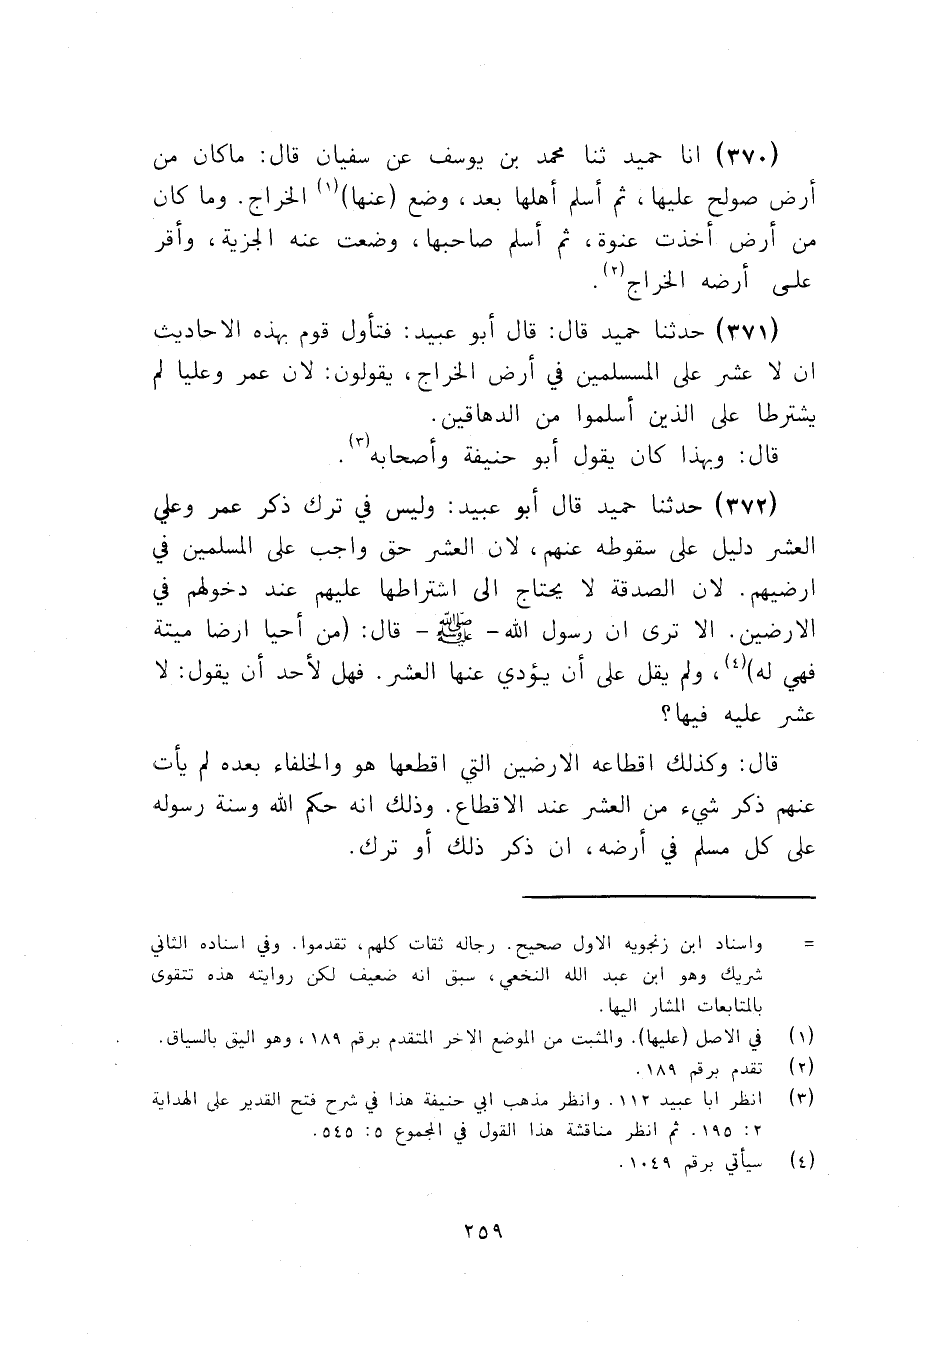 (٣٧٠) انا حميد ثنا محمد بن يوسف عن سفيان قال: ماكان من
أرض صولح عليها، ثم أسلم أهلها بعد، وضع (عنها)(١) الخراج. وما كان
من أرض أخذت عنوة، ثم أسلم صاحبها، وضعت عنه الجزية، وأقر
على أرضه الخراج(٢).
(٣٧١) حدثنا حميد قال: قال أبو عبيد: فتأول قوم بهذه الاحاديث
ان لا عشر على المسلمين في أرض الخراج، يقولون: لان عمر وعليا لم
يشترطا على الذين أسلموا من الدهاقين.
قال: وبهذا كان يقول أبو حنيفة وأصحابه(٣).
(٣٧٢) حدثنا حميد قال أبو عبيد: وليس في ترك ذكر عمر وعلي
العشر دليل على سقوطه عنهم، لان العشر حق واجب على المسلمين في
ارضيهم. لان الصدقة لا يحتاج الى اشتراطها عليهم عند دخولهم في
الارضين. الا ترى ان رسول الله - ﷺ - قال: (من أحيا ارضا ميتة
فهي له)(٤)، ولم يقل على أن يؤدي عنها العشر. فهل لأحد أن يقول: لا
عشر عليه فيها؟
قال: وكذلك اقطاعه الارضين التي اقطعها هو والخلفاء بعده لم يأت
عنهم ذكر شيء من العشر عند الاقطاع. وذلك انه حكم الله وسنة رسوله
على كل مسلم في أرضه، ان ذكر ذلك أو ترك.
= واسناد ابن زنجويه الاول صحيح. رجاله ثقات كلهم، تقدموا. وفي اسناده الثاني
شريك وهو ابن عبد الله النخعي، سبق انه ضعيف لكن روايته هذه تتقوى
بالمتابعات المشار اليها.
(١) في الاصل (عليها). والمثبت من الموضع الاخر المتقدم برقم ١٨٩، وهو اليق بالسياق.
(٢) تقدم برقم ١٨٩.
(٣) انظر ابا عبيد ١١٢. وانظر مذهب ابي حنيفة هذا في شرح فتح القدير على الهداية
٢: ١٩٥. ثم انظر مناقشة هذا القول في المجموع ٥: ٥٤٥.
(٤) سيأتي برقم ١٠٤٩.
٢٥٩